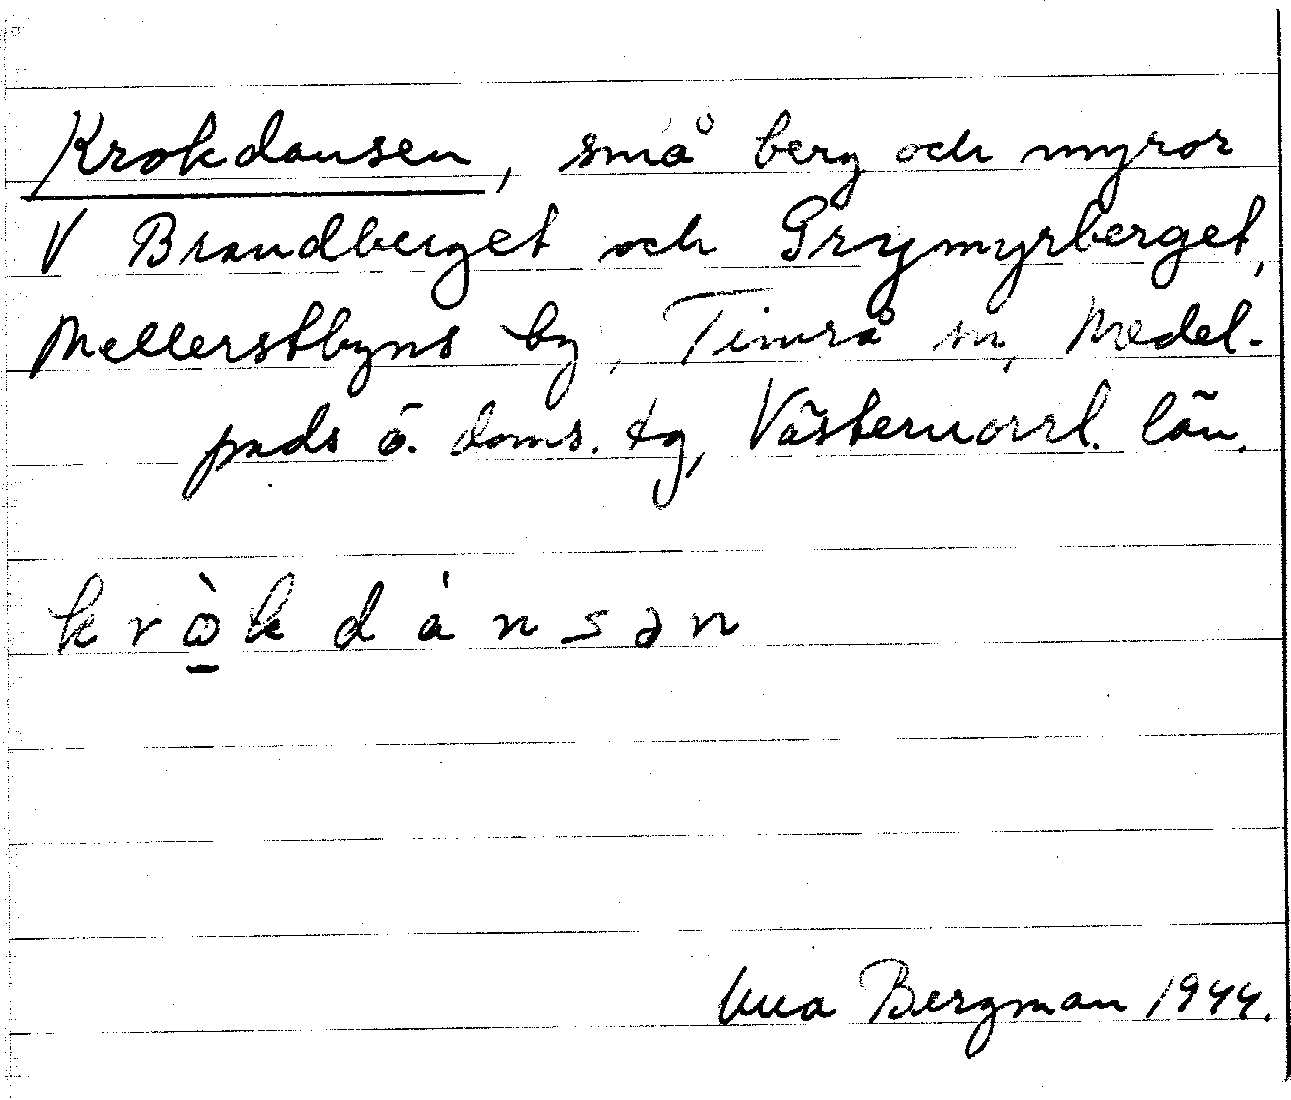 Krokdansen, små berg och myror
V Brandberget och Grymyrberget,
Mellerstbyns by, Timrå sn, Medel-
pads ö. doms. tg, Västernorrl. län.
kròkdánsən
Bergman 1944.